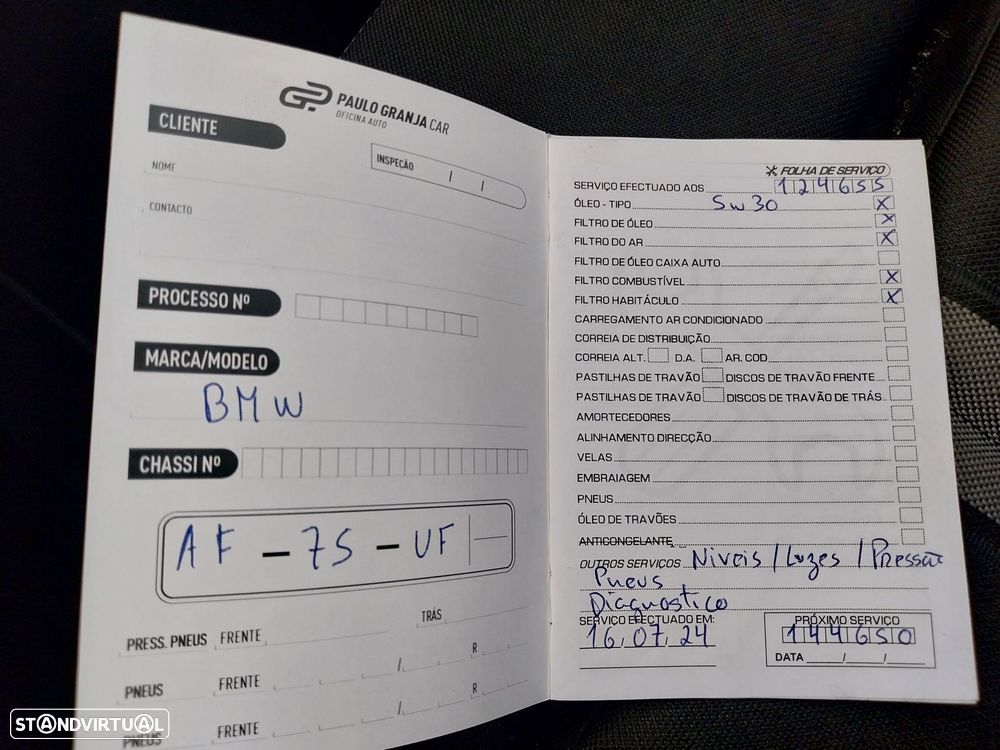 PAULO GRANJA CAR
OFICINA AUTO
CLIENTE
INSPEÇÃO / /
NOME
CONTACTO
PROCESSO Nº
MARCA/MODELO
BMW
CHASSI Nº
AF - 75 - UF
TRÁS
PRESS. PNEUS FRENTE
PNEUS FRENTE / R
PNEUS FRENTE / R
FOLHA DE SERVIÇO
SERVIÇO EFECTUADO AOS 124655
ÓLEO - TIPO 5w30 X
FILTRO DE ÓLEO X
FILTRO DO AR X
FILTRO DE ÓLEO CAIXA AUTO
FILTRO COMBUSTÍVEL X
FILTRO HABITÁCULO X
CARREGAMENTO AR CONDICIONADO
CORREIA DE DISTRIBUIÇÃO
CORREIA ALT. D.A. AR. COD
PASTILHAS DE TRAVÃO DISCOS DE TRAVÃO FRENTE
PASTILHAS DE TRAVÃO DISCOS DE TRAVÃO DE TRÁS
AMORTECEDORES
ALINHAMENTO DIRECÇÃO
VELAS
EMBRAIAGEM
PNEUS
ÓLEO DE TRAVÕES
ANTICONGELANTE
OUTROS SERVIÇOS Niveis / Luzes / Pressão
Pneus
Diagnostico
SERVIÇO EFECTUADO EM:
16.07.24
PRÓXIMO SERVIÇO
144650
DATA / /
STANDVIRTUAL